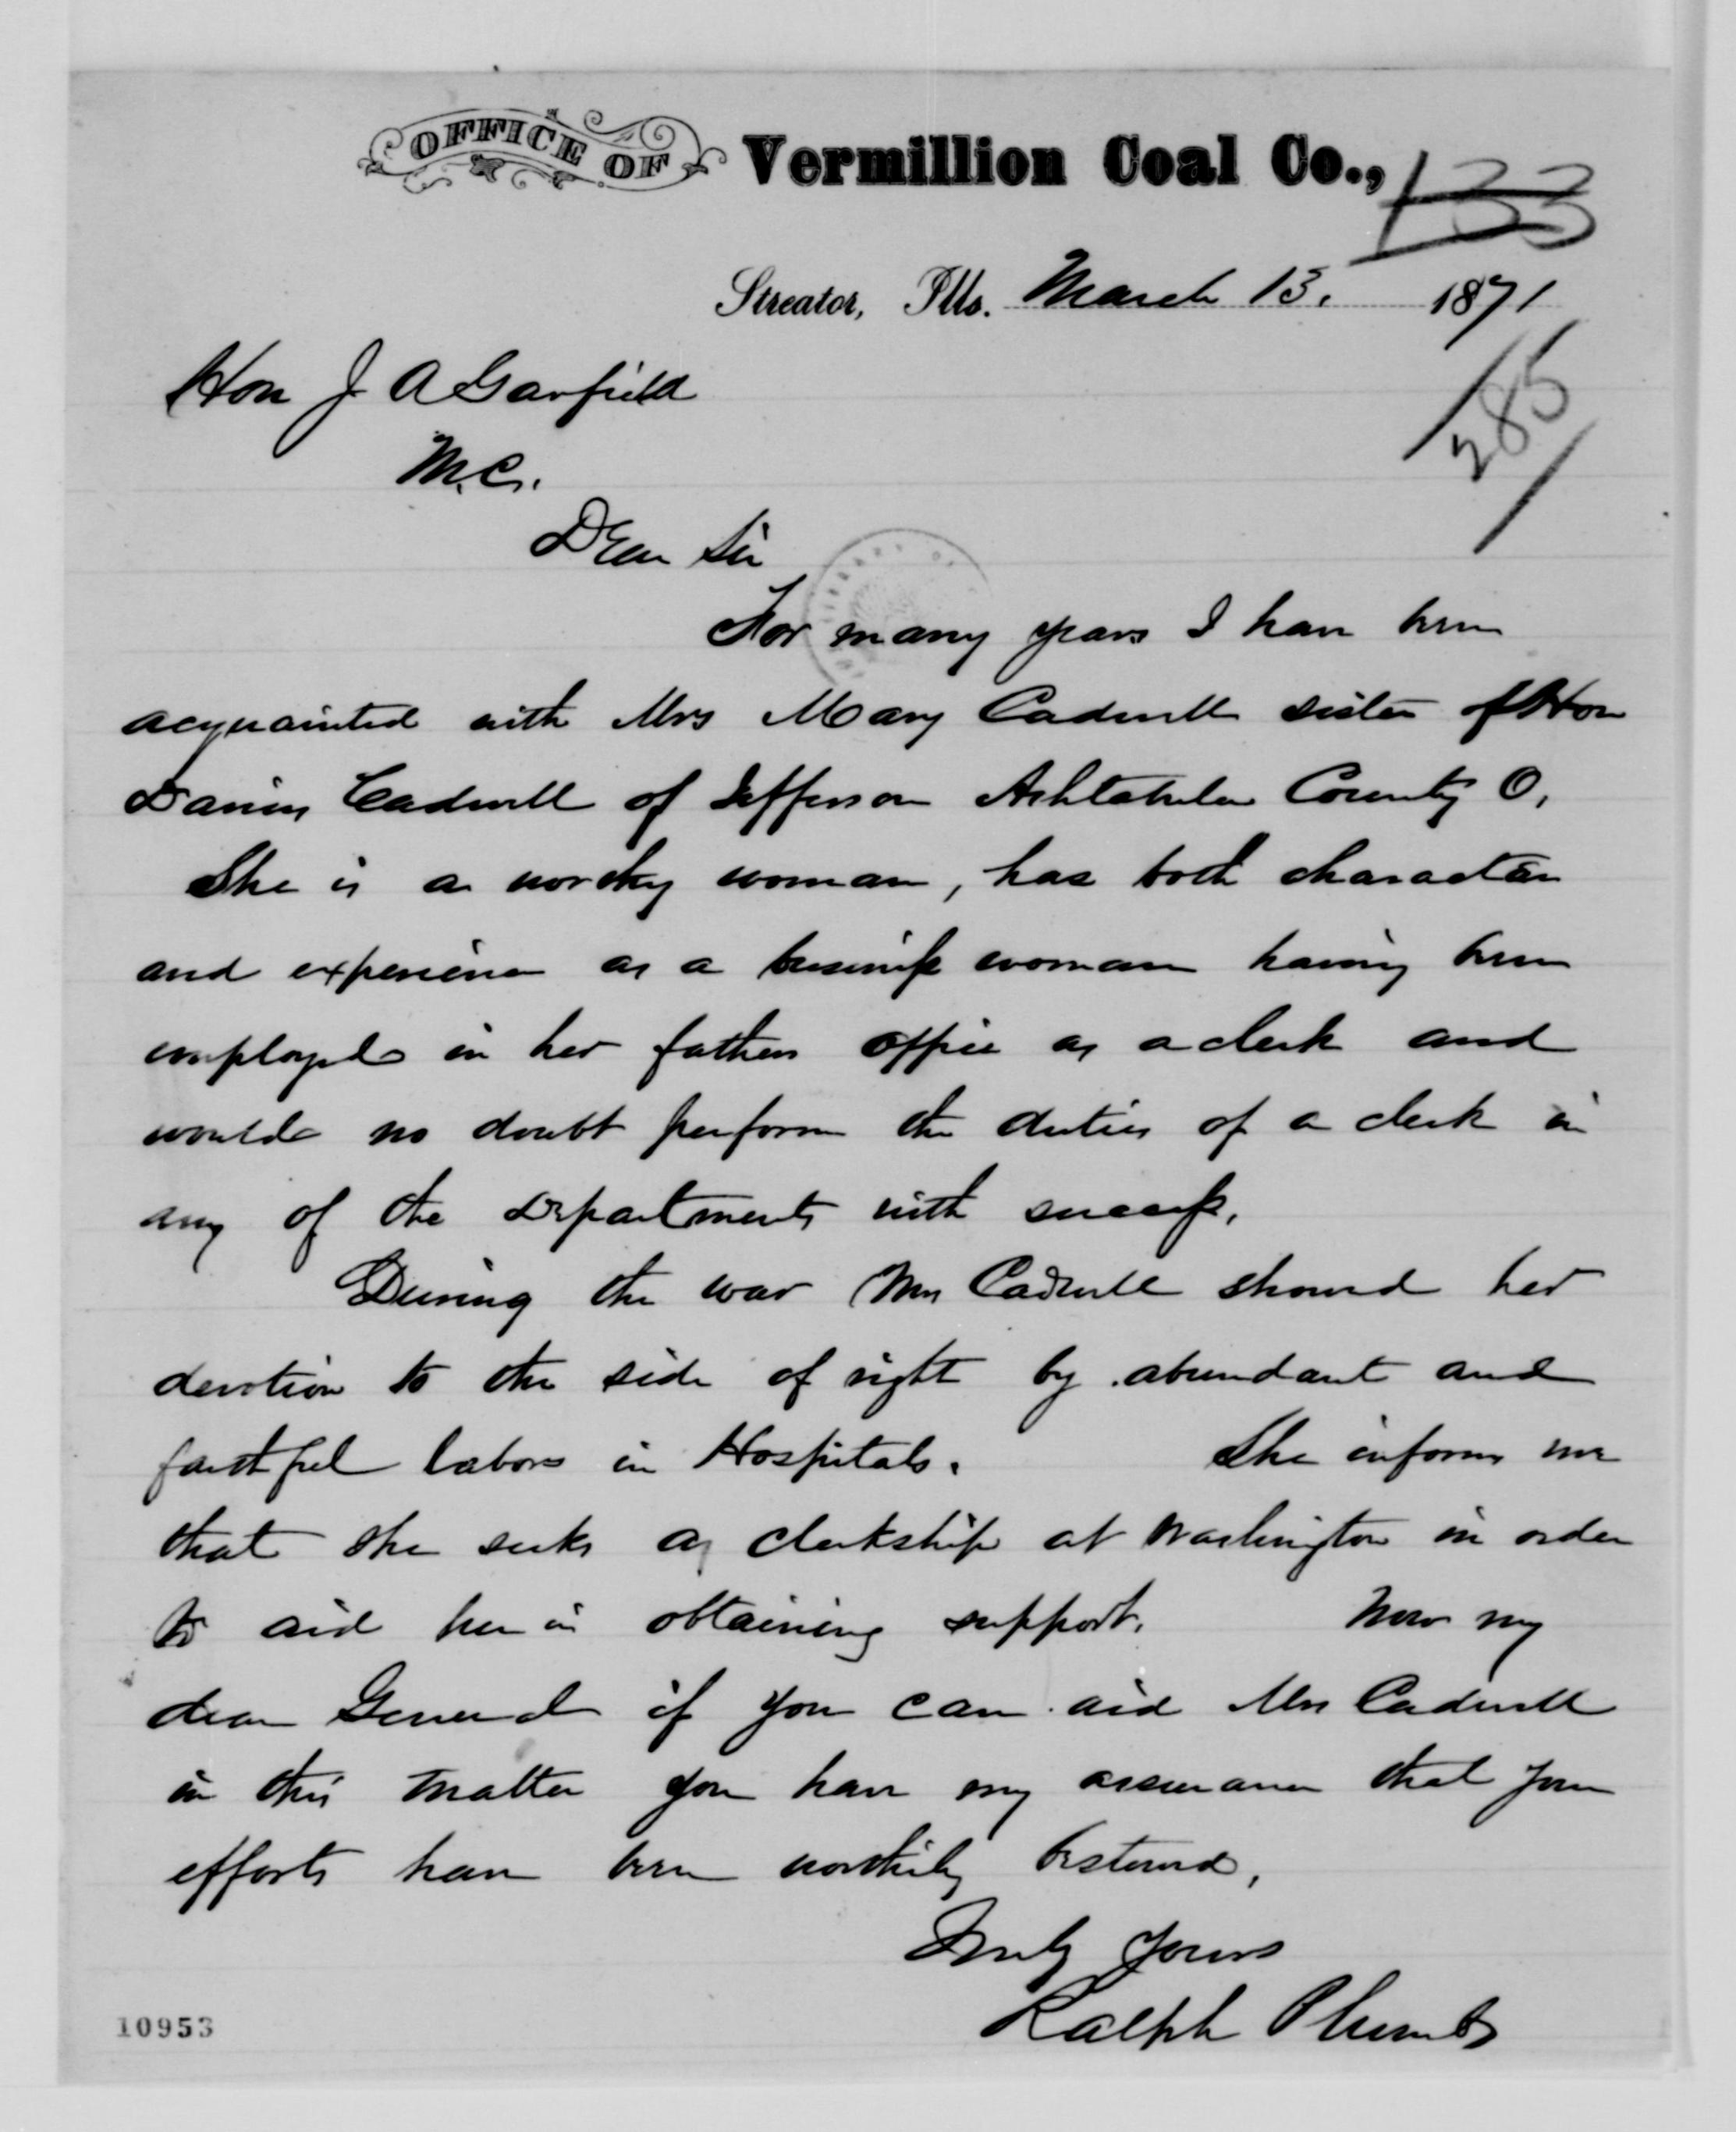 OFFICE OF Vermillion Coal Co.,
133
Streator, Ills. March 13. 1871
285
Hon J A Garfield
M.C.
Dear Sir
For many years I have been
acquainted with Mrs Mary Cadwell sister of Hon
Darius Cadwell of Jefferson Ashtabula County O.
She is a worthy woman, has both character
and experience as a business woman having been
employed in her fathers office as a clerk and
would no doubt perform the duties of a clerk in
any of the Departments with success.
During the war Mrs Cadwell showed her
devotion to the side of right by abundant and
faithful labors in Hospitals. She informs me
that she seeks a clerkship at Washington in order
to aid her in obtaining support. Now my
dear General if you can aid Mrs Cadwell
in this matter you have my assurance that your
efforts have been worthily bestowed,
Truly yours
Ralph Plumb
10953